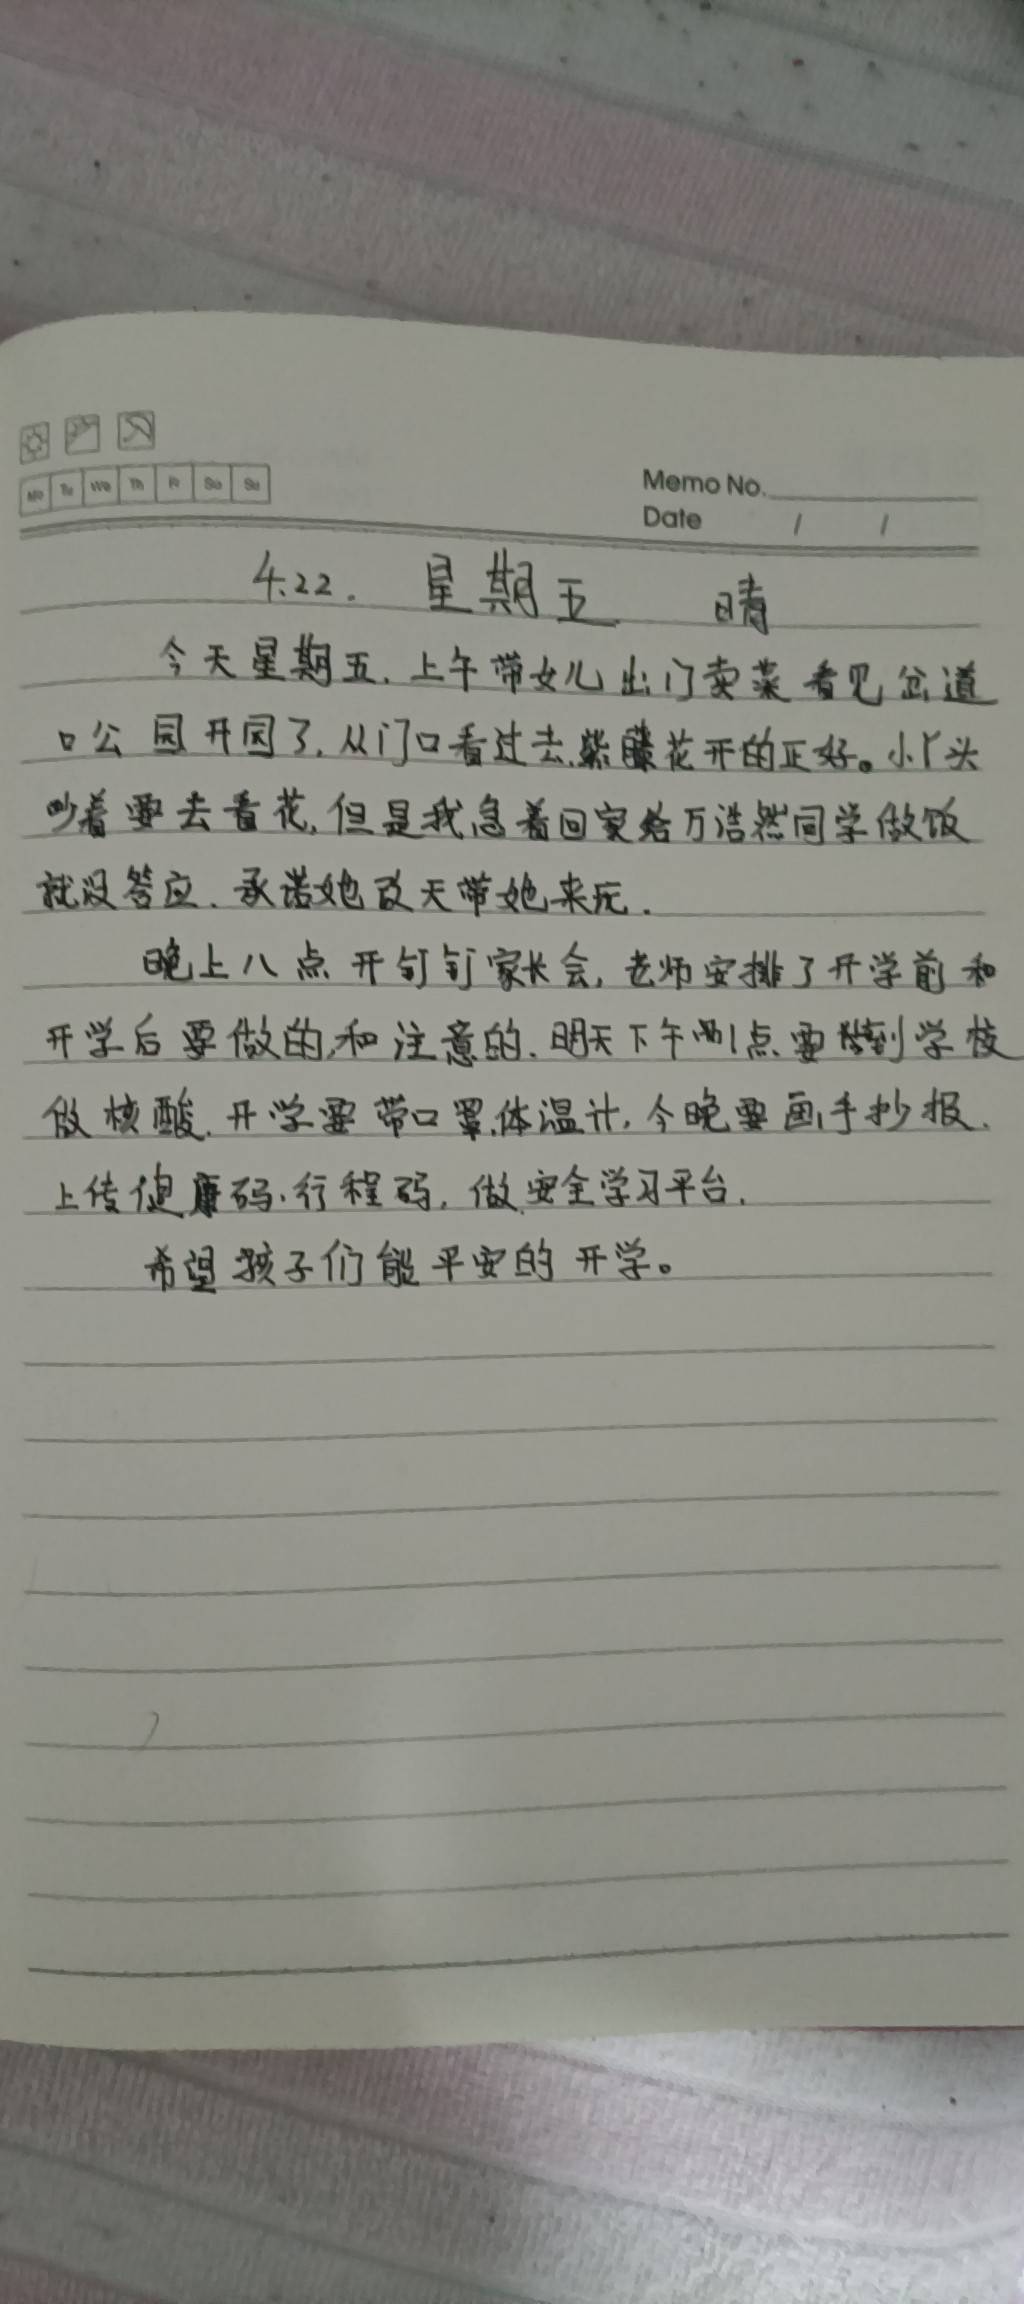 Mo Tu We Th Fr Sa Su
Memo No.
Date / /
4.22. 星期五 晴
今天星期五.上午带女儿出门卖菜看见岔道
口公园开园了,从门口看过去.紫藤花开的正好。小丫头
吵着要去看花,但是我急着回家给万浩然同学做饭
就没答应.承诺她改天带她来玩.
晚上八点开钉钉家长会,老师安排了开学前和
开学后要做的,和注意的.明天下午两点要到学校
做核酸.开学要带口罩.体温计,今晚要画手抄报.
上传健康码.行程码,做安全学习平台.
希望孩子们能平安的开学。